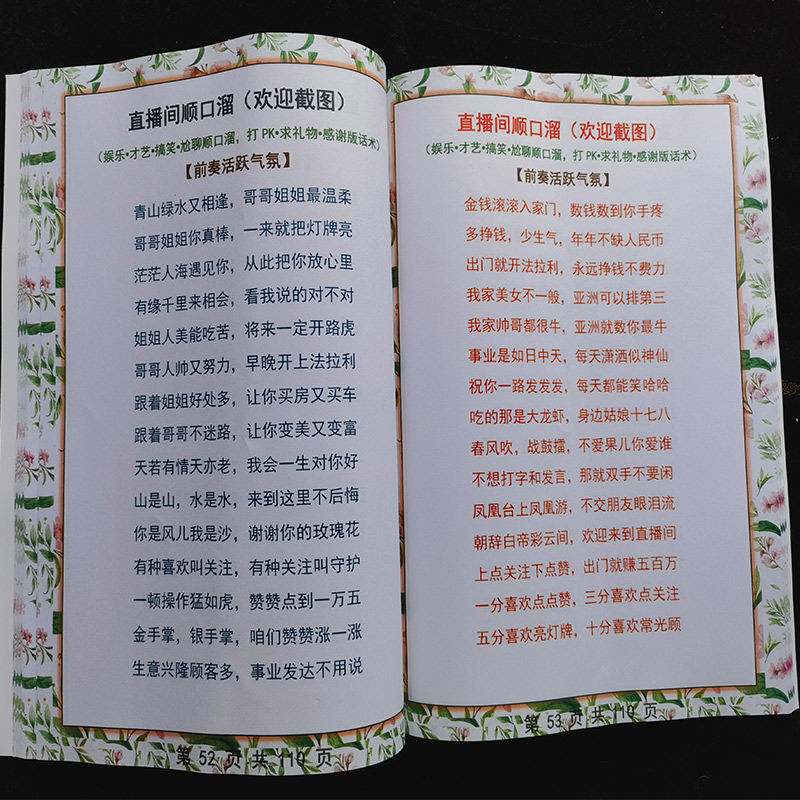 直播间顺口溜（欢迎截图）
（娱乐•才艺•搞笑•尬聊顺口溜，打PK•求礼物•感谢版话术）
【前奏活跃气氛】
青山绿水又相逢，哥哥姐姐最温柔
哥哥姐姐你真棒，一来就把灯牌亮
茫茫人海遇见你，从此把你放心里
有缘千里来相会，看我说的对不对
姐姐人美能吃苦，将来一定开路虎
哥哥人帅又努力，早晚开上法拉利
跟着姐姐好处多，让你买房又买车
跟着哥哥不迷路，让你变美又变富
天若有情天亦老，我会一生对你好
山是山，水是水，来到这里不后悔
你是风儿我是沙，谢谢你的玫瑰花
有种喜欢叫关注，有种关注叫守护
一顿操作猛如虎，赞赞点到一万五
金手掌，银手掌，咱们赞赞涨一涨
生意兴隆顾客多，事业发达不用说
第 52 页 共 110 页
直播间顺口溜（欢迎截图）
（娱乐•才艺•搞笑•尬聊顺口溜，打PK•求礼物•感谢版话术）
【前奏活跃气氛】
金钱滚滚入家门，数钱数到你手疼
多挣钱，少生气，年年不缺人民币
出门就开法拉利，永远挣钱不费力
我家美女不一般，亚洲可以排第三
我家帅哥都很牛，亚洲就数你最牛
事业是如日中天，每天潇洒似神仙
祝你一路发发发，每天都能笑哈哈
吃的那是大龙虾，身边姑娘十七八
春风吹，战鼓擂，不爱果儿你爱谁
不想打字和发言，那就双手不要闲
凤凰台上凤凰游，不交朋友眼泪流
朝辞白帝彩云间，欢迎来到直播间
上点关注下点赞，出门就赚五百万
一分喜欢点点赞，三分喜欢点关注
五分喜欢亮灯牌，十分喜欢常光顾
第 53 页 共 110 页